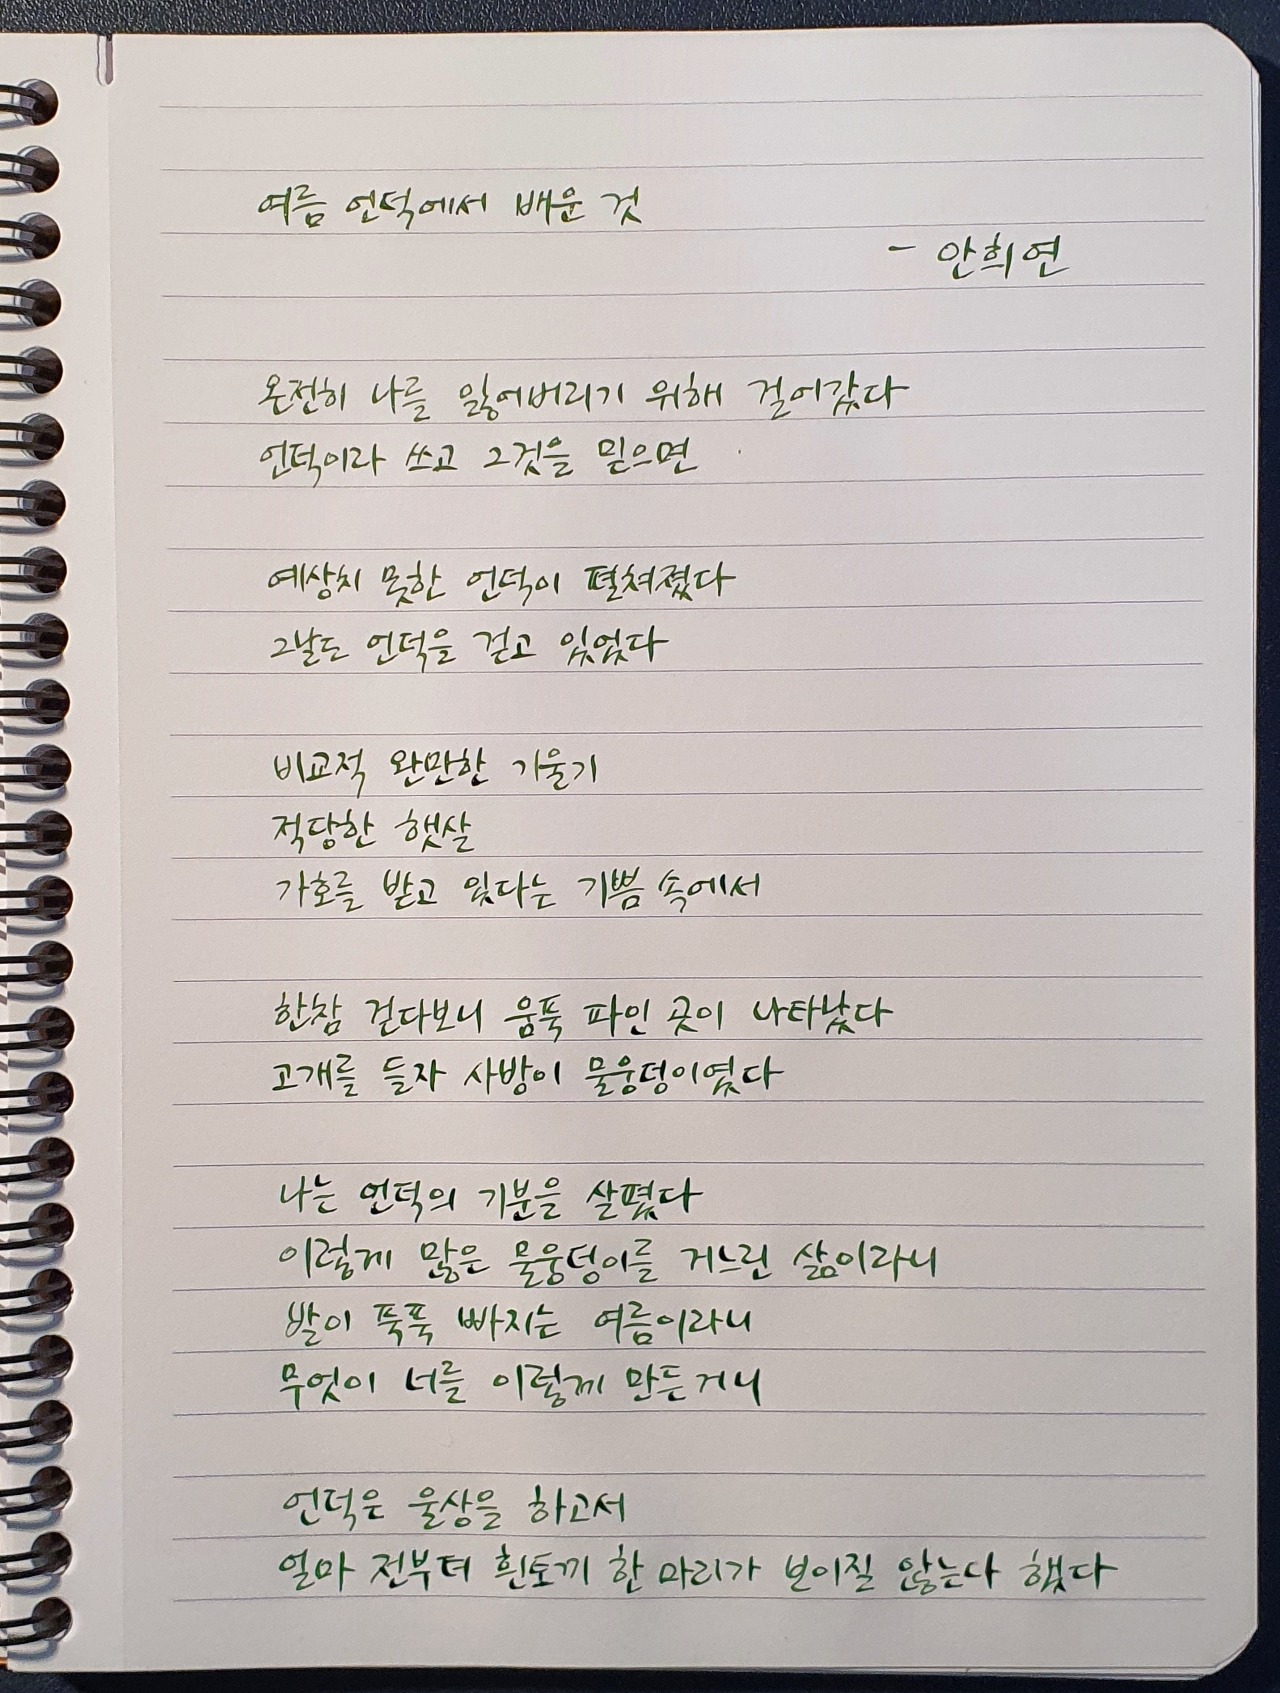 여름 언덕에서 배운 것
- 안희연
온전히 나를 잃어버리기 위해 걸어갔다
언덕이라 쓰고 그것을 믿으면
예상치 못한 언덕이 펼쳐졌다
그날도 언덕을 걷고 있었다
비교적 완만한 기울기
적당한 햇살
가호를 받고 있다는 기쁨 속에서
한참 걷다보니 움푹 파인 곳이 나타났다
고개를 들자 사방이 물웅덩이였다
나는 언덕의 기분을 살폈다
이렇게 많은 물웅덩이를 거느린 삶이라니
발이 푹푹 빠지는 여름이라니
무엇이 너를 이렇게 만든거니
언덕은 울상을 하고서
얼마 전부터 흰토끼 한 마리가 보이질 않는다 했다